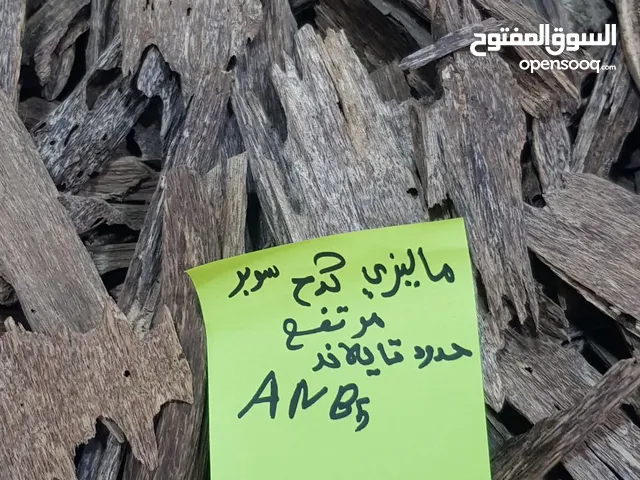 السوق المفتوح
opensooq.com
ماليزي كدح سوبر
مرتفع
حدود تايلاند
ANB5